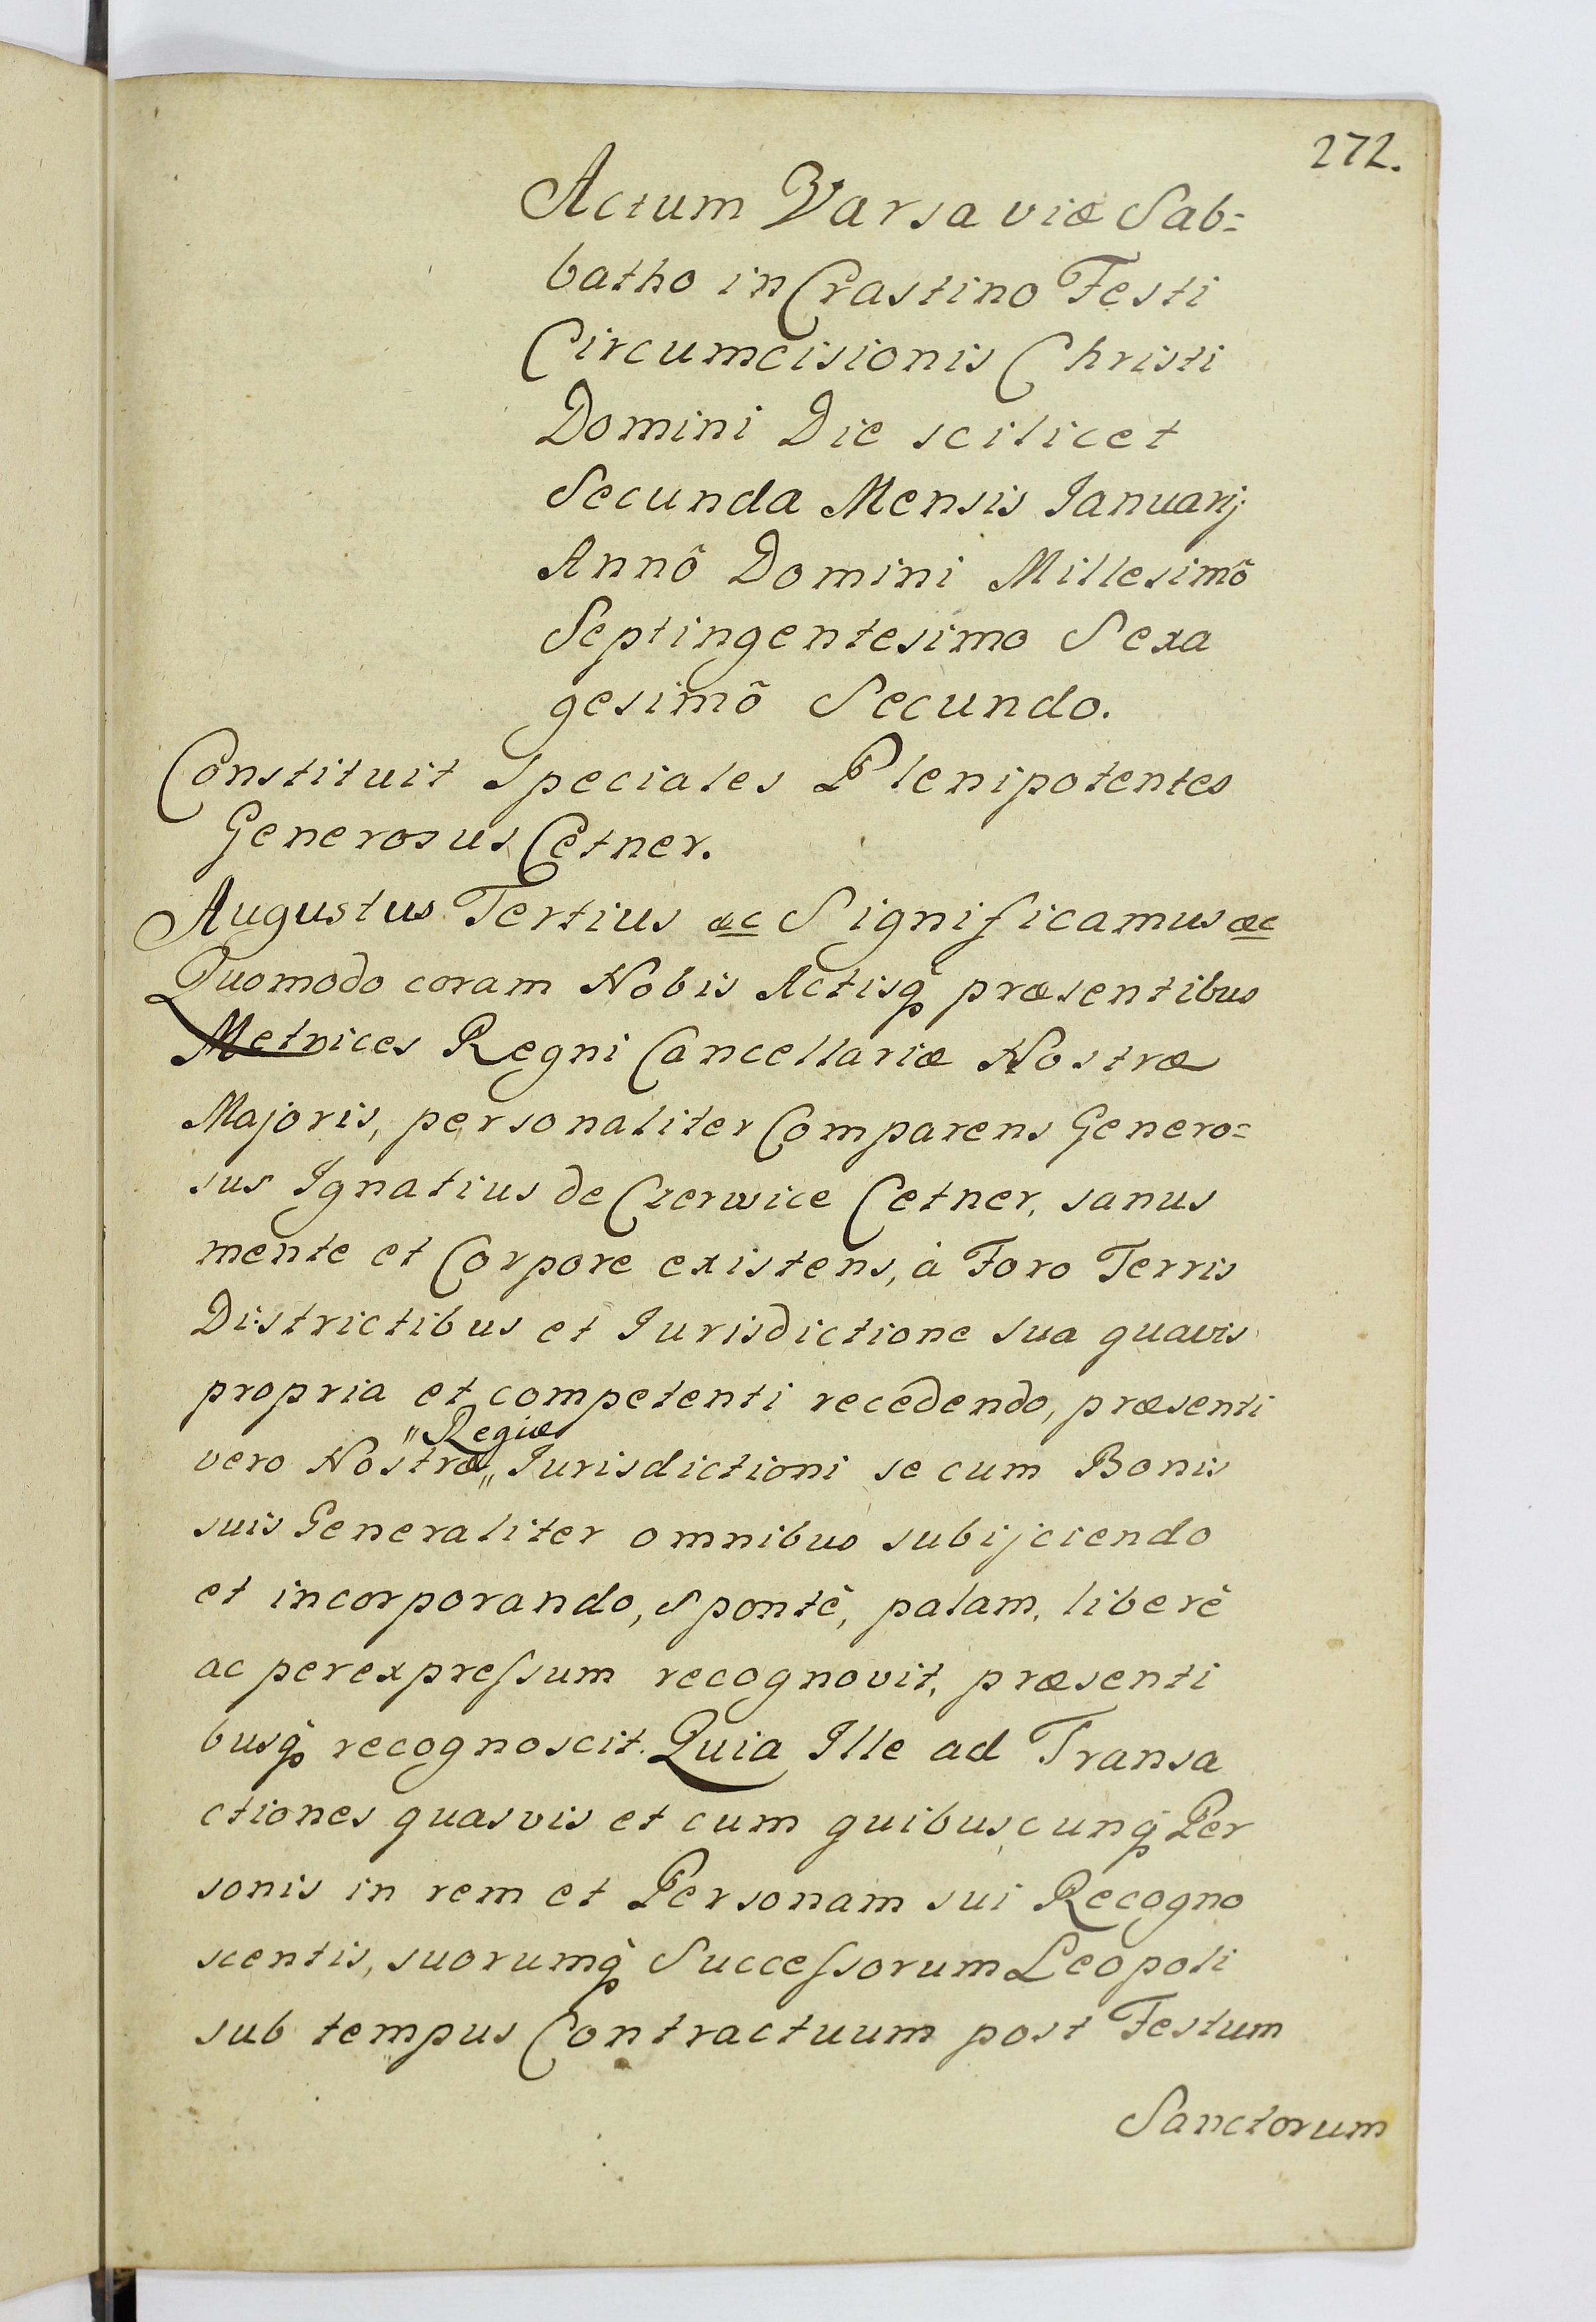 272.
Actum Varsaviæ Sab=
batho in Crastino Festi
Circumcisionis Christi
Domini Die scilicet
Secunda Mensis Ianuarij
Annô Domini Millesimô
Septingentesimo Sexa
gesimô Secundo.
Constituit Speciales Plenipotentes
Generosus Cetner.
Augustus Tertius &c Significamus &c
Quomodo coram Nobis Actisq̃ præsentibus
Metrices Regni Cancellariæ Nostræ
Majoris, personaliter Comparens Genero=
sus Ignatius de Czerwice Cetner, sanus
mente et Corpore existens, à Foro Terris
Districtibus et Iurisdictione sua quavis
propria et competenti recedendo, præsenti
"Regiæ
vero Nostræ„ Iurisdictioni se cum Bonis
suis Generaliter omnibus subijciendo
et incorporando, Spontè, palam, liberè
ac perexpreſsum recognovit, præsenti
busq̃ recognoscit. Quia Ille ad Transa
ctiones quasvis et cum quibuscunq̃ Per
sonis in rem et Personam sui Recogno
scentis, suorumq̃ Succeſsorum Leopoli
sub tempus Contractuum post Festum
Sanctorum